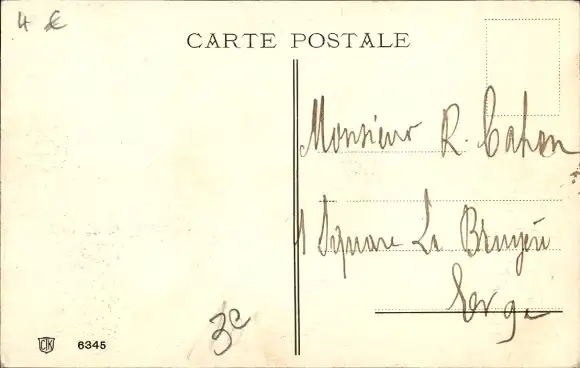 4 €
CARTE POSTALE
Monsieur R. Cahen
1 Square La Bruyère
3e
CK 6345